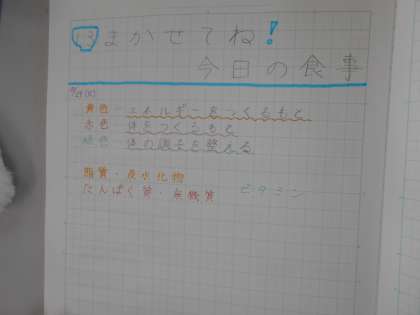 まかせてね!
今日の食事
黄色 エネルギーをつくるもと
赤色 体をつくるもと
緑色 体の調子を整える
脂質・炭水化物
たんぱく質・無機質 ビタミン